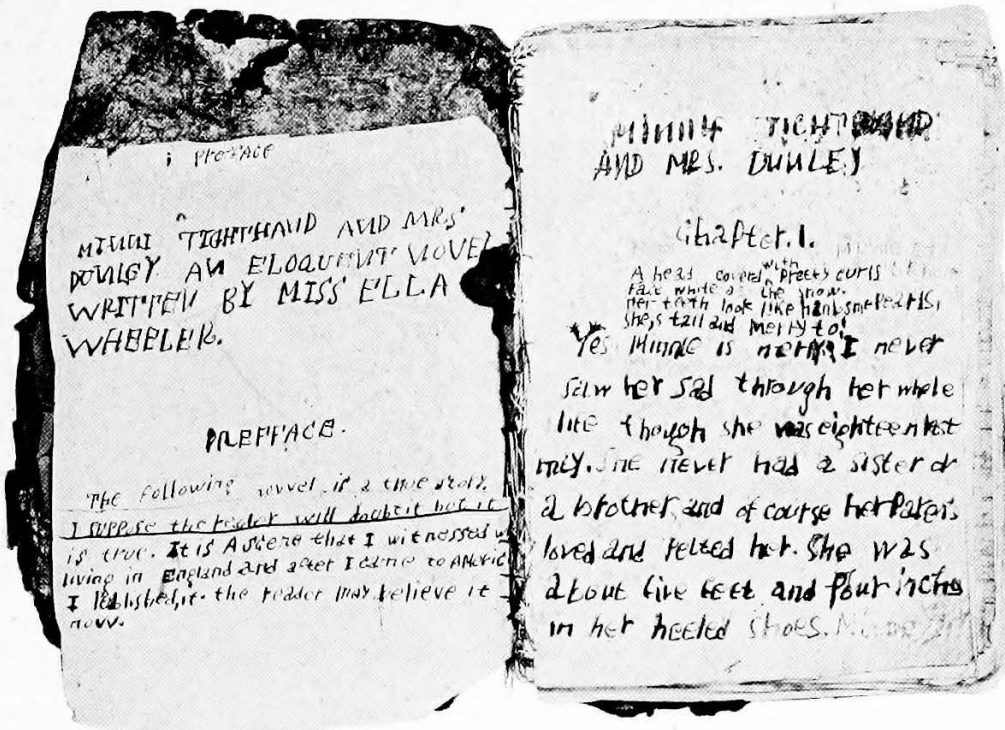 PREFACE
MINNI TIGHTHAND AND MRS
DUNLEY AN ELOQUENT NOVEL
WRITTEN BY MISS ELLA
WHEELER.
PREFFACE.
The following novvel is a true story.
I suppose the reader will doubt it but it
is true. It is A sciene that I witnessed
living in England and after I came to Americ
I published it. the reader may believe it
now.
MINNIE TIGHTHAND
AND MRS. DUNLEY
Chapter. 1.
A head coverd with pretty curls
face white as the snow.
Her teeth look like hansome Pearls,
she,s tall and merry to!
Yes Minnie is merry, I never
saw her sad through her whole
life though she was eighteen last
may. She never had a sister or
a brother, and of course her Parens
loved and petted her. She was
about five feet and four inches
in her heeled shoes.